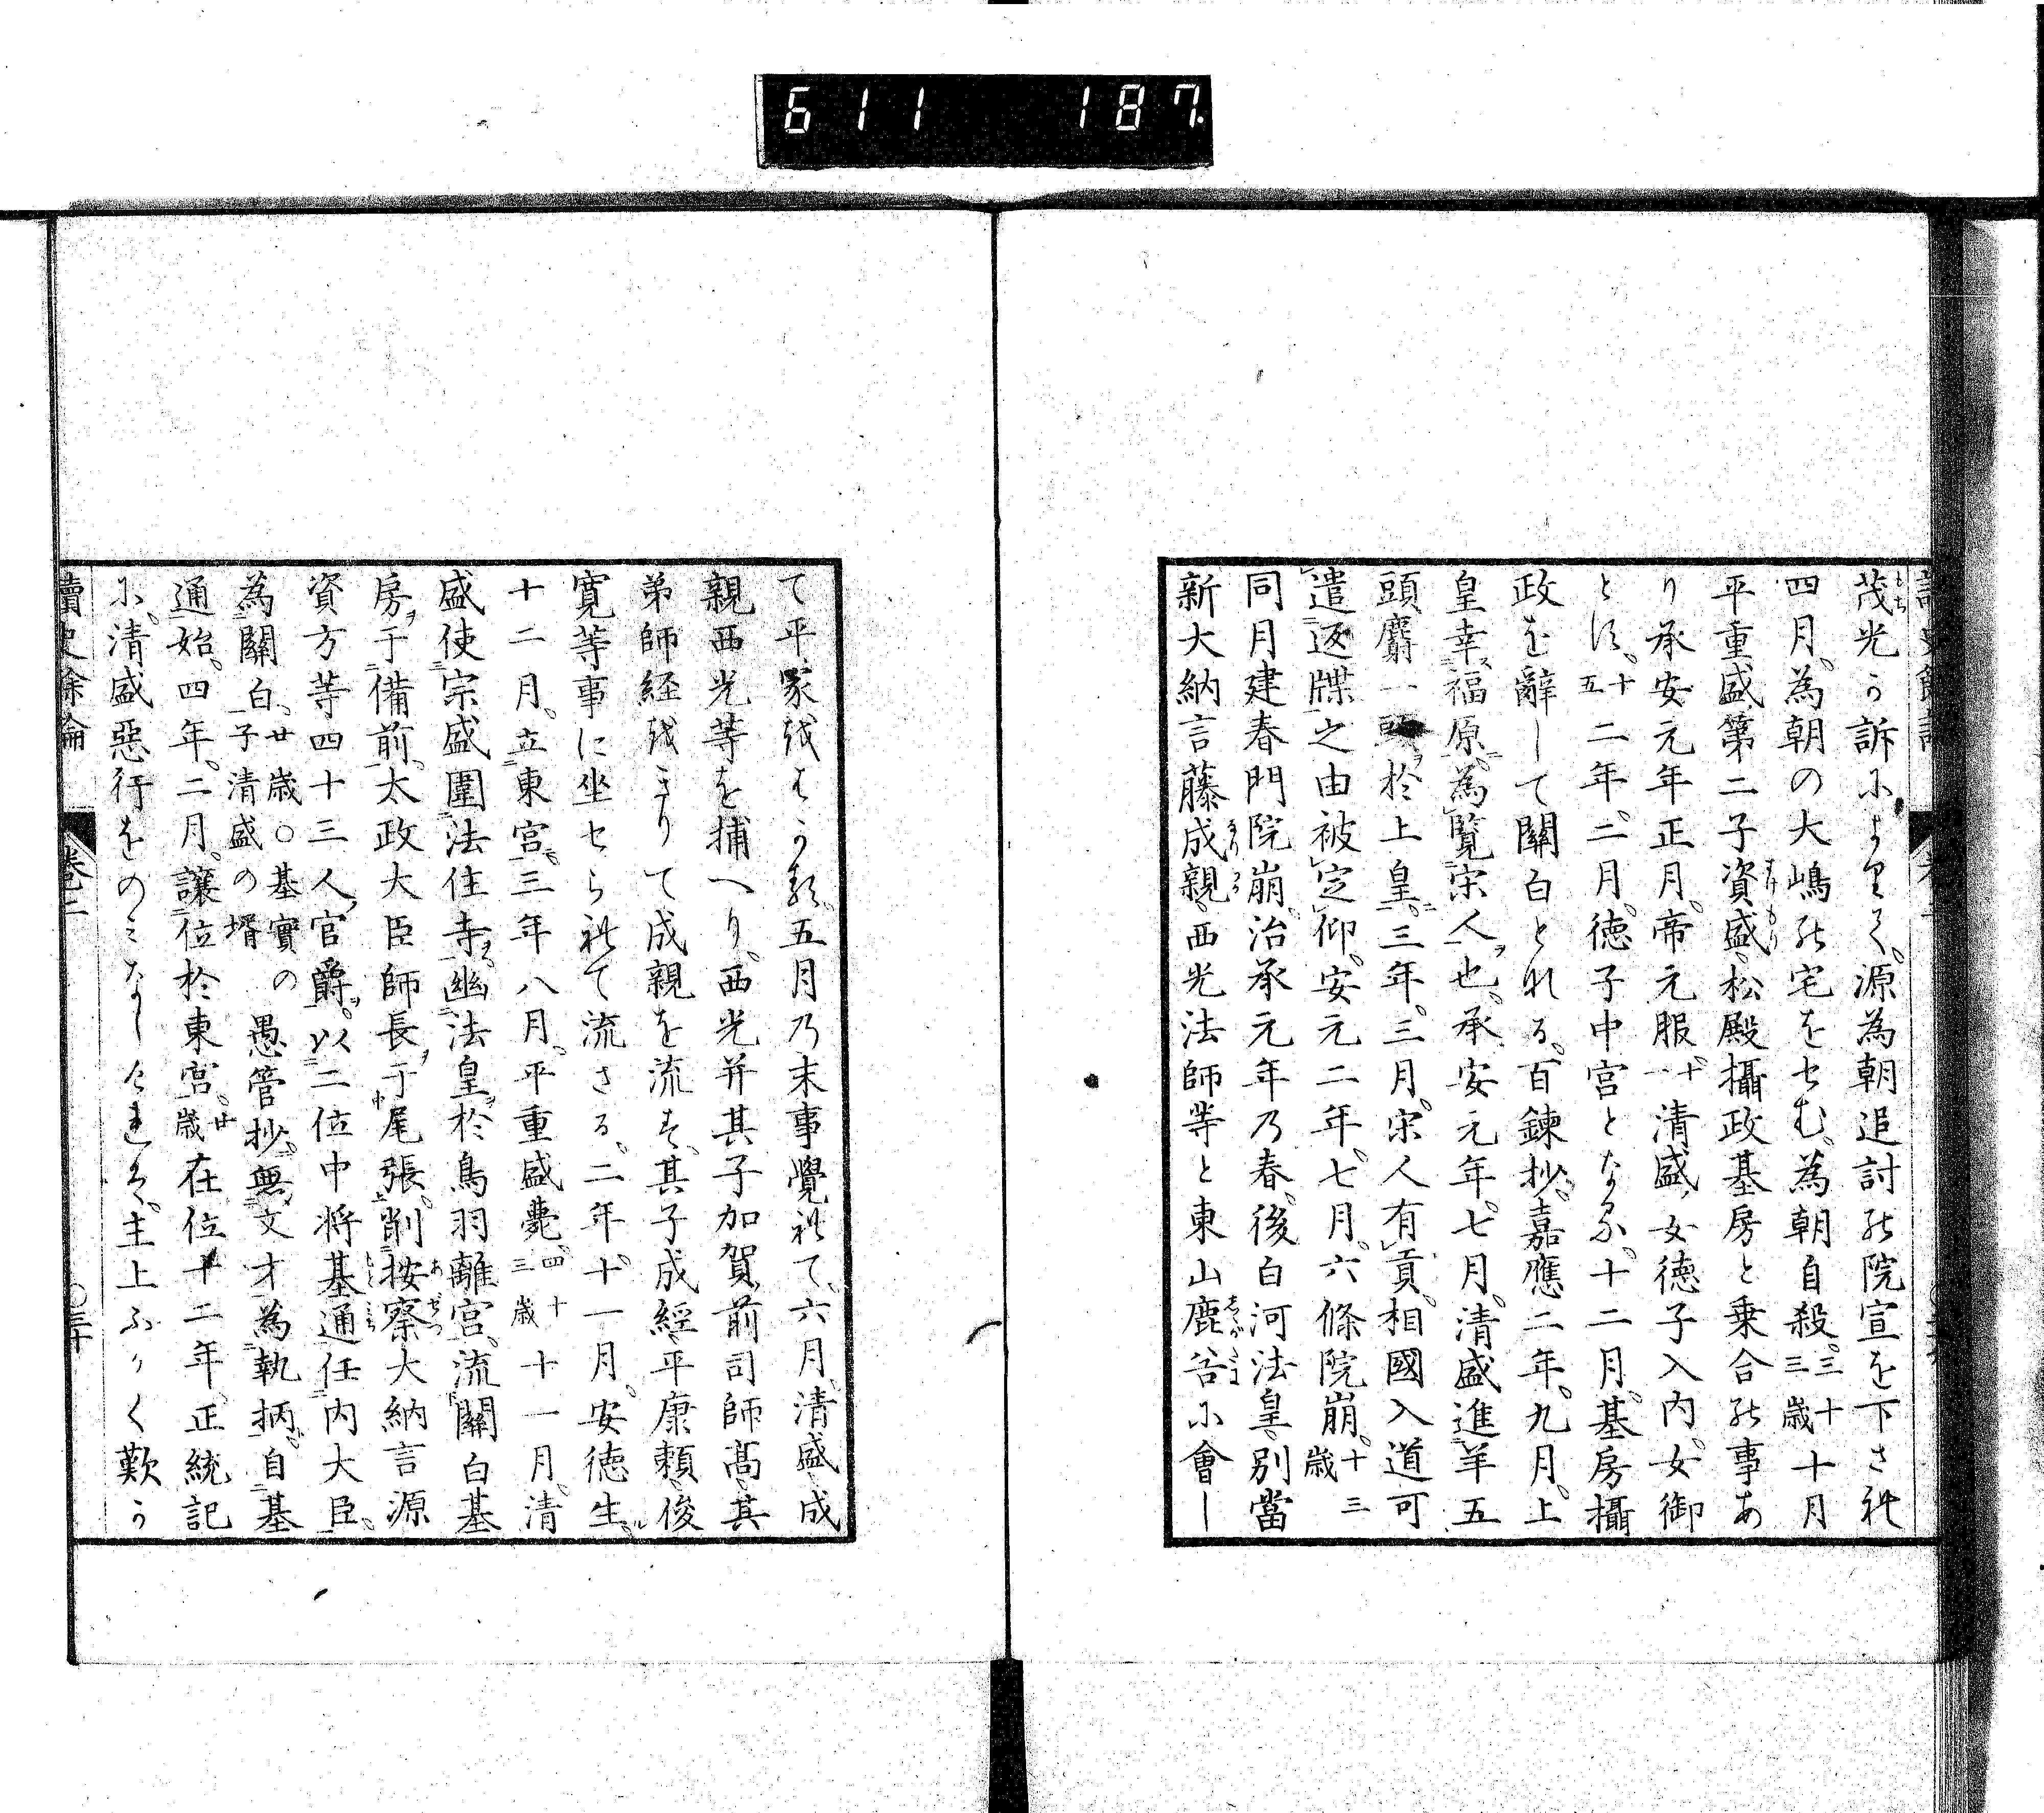 611 187.
茂光か訴によりて。源為朝追討の院宣を下され
四月。為朝の大嶋の宅をせむ。為朝自殺。三十三歳十月
平重盛第二子資盛。松殿攝政基房と乗合の事あ
り承安元年正月。帝元服。十一清盛女徳子入内。女御
とす。十五二年。二月。徳子中宮となる。十二月。基房攝
政を辭して關白となる。百錬抄。嘉應二年。九月。上
皇幸福原。為覧宋人也。承安元年。七月。清盛進羊五
頭麝一頭於上皇。三年。三月。宋人有貢。相國入道可
遣返牒之由被定仰。安元二年。七月。六條院崩。十三歳
同月建春門院崩。治承元年乃春。後白河法皇別當
新大納言藤成親。西光法師等と東山鹿谷に會し
て平家をはかる。五月乃末事覺れて。六月。清盛成
親西光等を捕へり。西光并其子加賀前司師高。其
弟師経をきりて成親を流す。其子成經平康頼俊
寛等事に坐せられて流さる。二年。十一月。安徳生。
十二月。立東宮。三年八月。平重盛薨。四十三歳十一月。清
盛使宗盛圍法住寺。幽法皇於鳥羽離宮。流關白基
房于備前。太政大臣師長于尾張。削按察大納言源
資方等四十三人官爵。以二位中将基通任内大臣。
為關白。廿歳○基實の子清盛の壻愚管抄。無文才為執柄。自基
通始。四年。二月。讓位於東宮。廿歳在位十二年。正統記
に。清盛惡行をのみなしけれは。主上ふかく歎か
讀史餘論 巻之二 ○三十